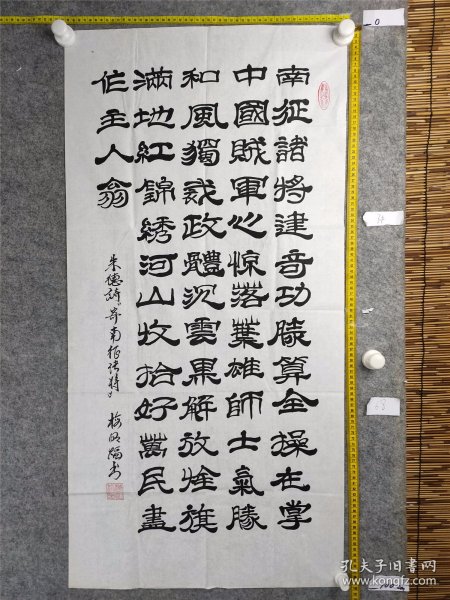 南征諸將建奇功勝算全操在掌
中國賊軍心惊落葉雄師士氣勝
和風獨裁政體沉雲黑解放旌旗
滿地紅錦綉河山收拾好萬民盡
作主人翁
朱德詩寄南征諸將
孔夫子旧书网
www.kongfz.com